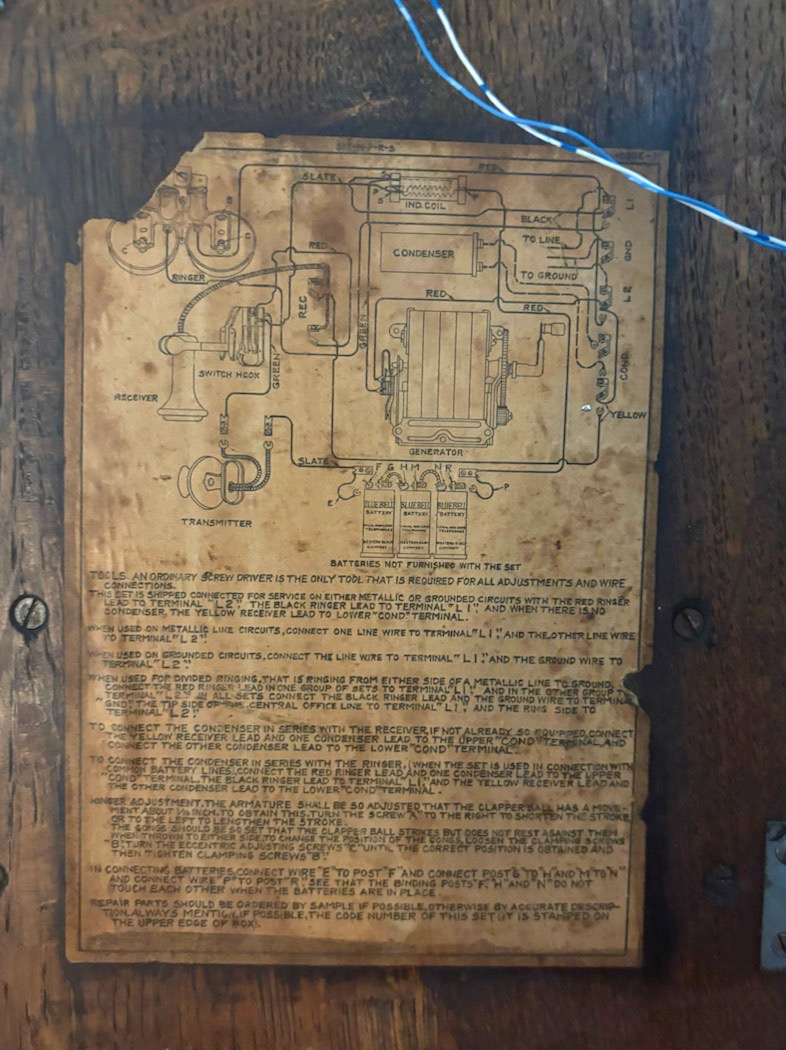 RED
SLATE
IND. COIL
L1
BLACK
TO LINE
GND
CONDENSER
RED
TO GROUND
RINGER
C
B
S
P
L2
RED
RED
REC
GREEN
GREEN
SWITCH HOOK
COND.
RECEIVER
YELLOW
GENERATOR
SLATE
F G H M N R
E
P
BLUE BELL BLUE BELL BLUE BELL
BATTERY BATTERY BATTERY
TRANSMITTER
BATTERIES NOT FURNISHED WITH THE SET
TOOLS. AN ORDINARY SCREW DRIVER IS THE ONLY TOOL THAT IS REQUIRED FOR ALL ADJUSTMENTS AND WIRE
CONNECTIONS.
THIS SET IS SHIPPED CONNECTED FOR SERVICE ON EITHER METALLIC OR GROUNDED CIRCUITS WITH THE RED RINGER
LEAD TO TERMINAL "L2", THE BLACK RINGER LEAD TO TERMINAL "L1", AND WHEN THERE IS NO
CONDENSER, THE YELLOW RECEIVER LEAD TO LOWER "COND" TERMINAL.
WHEN USED ON METALLIC LINE CIRCUITS, CONNECT ONE LINE WIRE TO TERMINAL "L1", AND THE OTHER LINE WIRE
TO TERMINAL "L2".
WHEN USED ON GROUNDED CIRCUITS, CONNECT THE LINE WIRE TO TERMINAL "L1", AND THE GROUND WIRE TO
TERMINAL "L2".
WHEN USED FOR DIVIDED RINGING, THAT IS RINGING FROM EITHER SIDE OF A METALLIC LINE TO GROUND,
CONNECT THE RED RINGER LEAD IN ONE GROUP OF SETS TO TERMINAL "L1", AND IN THE OTHER GROUP TO
TERMINAL "L2". IN ALL SETS CONNECT THE BLACK RINGER LEAD AND THE GROUND WIRE TO TERMINAL
"GND", THE TIP SIDE OF THE CENTRAL OFFICE LINE TO TERMINAL "L1", AND THE RING SIDE TO
TERMINAL "L2".
TO CONNECT THE CONDENSER IN SERIES WITH THE RECEIVER, IF NOT ALREADY SO EQUIPPED, CONNECT
THE YELLOW RECEIVER LEAD AND ONE CONDENSER LEAD TO THE UPPER "COND" TERMINAL, AND
CONNECT THE OTHER CONDENSER LEAD TO THE LOWER "COND" TERMINAL.
TO CONNECT THE CONDENSER IN SERIES WITH THE RINGER, (WHEN THE SET IS USED IN CONNECTION WITH
COMMON BATTERY LINES), CONNECT THE RED RINGER LEAD AND ONE CONDENSER LEAD TO THE UPPER
"COND" TERMINAL, THE BLACK RINGER LEAD TO TERMINAL "L1", AND THE YELLOW RECEIVER LEAD AND
THE OTHER CONDENSER LEAD TO THE LOWER "COND" TERMINAL.
RINGER ADJUSTMENT. THE ARMATURE SHALL BE SO ADJUSTED THAT THE CLAPPER BALL HAS A MOVE-
MENT ABOUT INCH. TO OBTAIN THIS, TURN THE SCREW "A" TO THE RIGHT TO SHORTEN THE STROKE
OR TO THE LEFT TO LENGTHEN THE STROKE.
THE GONGS SHOULD BE SO SET THAT THE CLAPPER BALL STRIKES BUT DOES NOT REST AGAINST THEM
WHEN THROWN TO EITHER SIDE. TO CHANGE THE POSITION OF THE GONGS, LOOSEN THE CLAMPING SCREWS
"B", TURN THE ECCENTRIC ADJUSTING SCREWS "C" UNTIL THE CORRECT POSITION IS OBTAINED AND
THEN TIGHTEN CLAMPING SCREWS "B".
IN CONNECTING BATTERIES, CONNECT WIRE "E" TO POST "F" AND CONNECT POST G TO "H" AND M TO "N"
AND CONNECT WIRE "P" TO POST "R". SEE THAT THE BINDING POSTS "F", "H" AND "N" DO NOT
TOUCH EACH OTHER WHEN THE BATTERIES ARE IN PLACE.
REPAIR PARTS SHOULD BE ORDERED BY SAMPLE IF POSSIBLE, OTHERWISE BY ACCURATE DESCRIP-
TION. ALWAYS MENTION, IF POSSIBLE, THE CODE NUMBER OF THIS SET (IT IS STAMPED ON
THE UPPER EDGE OF BOX).